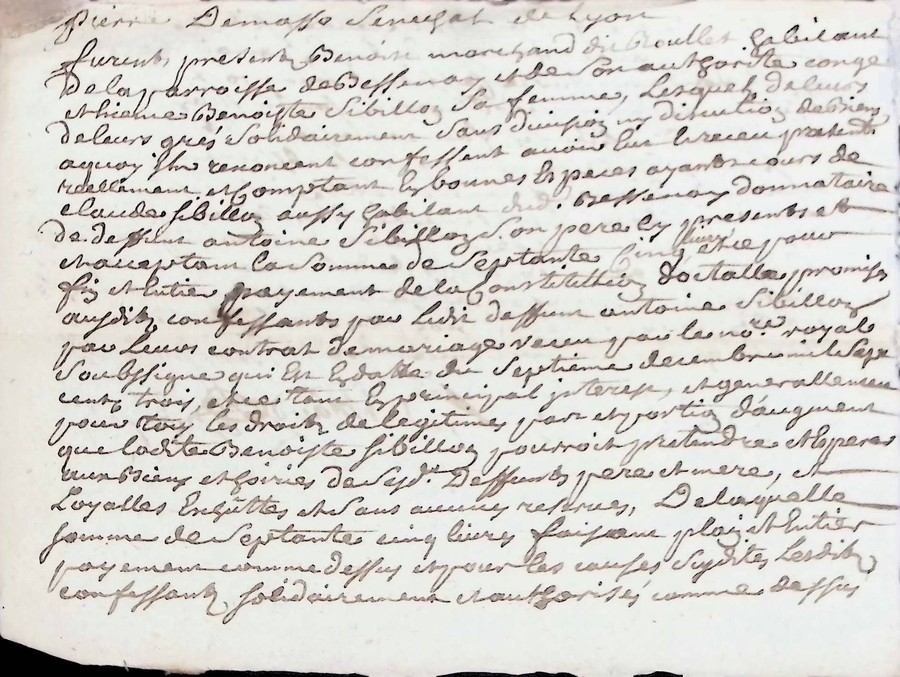 Pierre Demasso Senechal de Lyon
furent present Benoist marchand dit Roullet habitant
de la parroisse de Bessenay et de son authorité congé
et licence Benoiste Sibillon sa femme, Lesquels de leurs
de leurs grés solidairement sans division ny discution de biens
a quoy ils renoncent confessent avoir Eu et receu presente
reellement et comptant En bonnes Especes ayants cours de
claude Sibillon aussy habitant dud. Bessenay donnataire
de deffunt antoine Sibillon son pere Cy presents et
et acceptant la somme de septante Cinq livres et ce pour
fin et Entier payement de la Constitution dottalle promise
ausdits confessants par Ledit deffunt antoine Sibillon
par Leurs contrat de mariage receu par le nore. royal
soubssigné qui Est En datte du Septieme decembre mil sept
cents trois, et ce tant En principal interest, et generallement
pour tous les droits de legitimes part et portion d'augment
que ladite Benoiste Sibillon pourroit pretendre et Esperer
aux Biens et hoiries de sesd. Deffunts pere et mere, et
Loyalles Enquittes et sans aucunes reserves, De laquelle
somme de septante cinq livres faisant plain et Entier
payement comme dessus et pour les causes susdites Lesdits
confessants solidairement et authorisés comme dessus